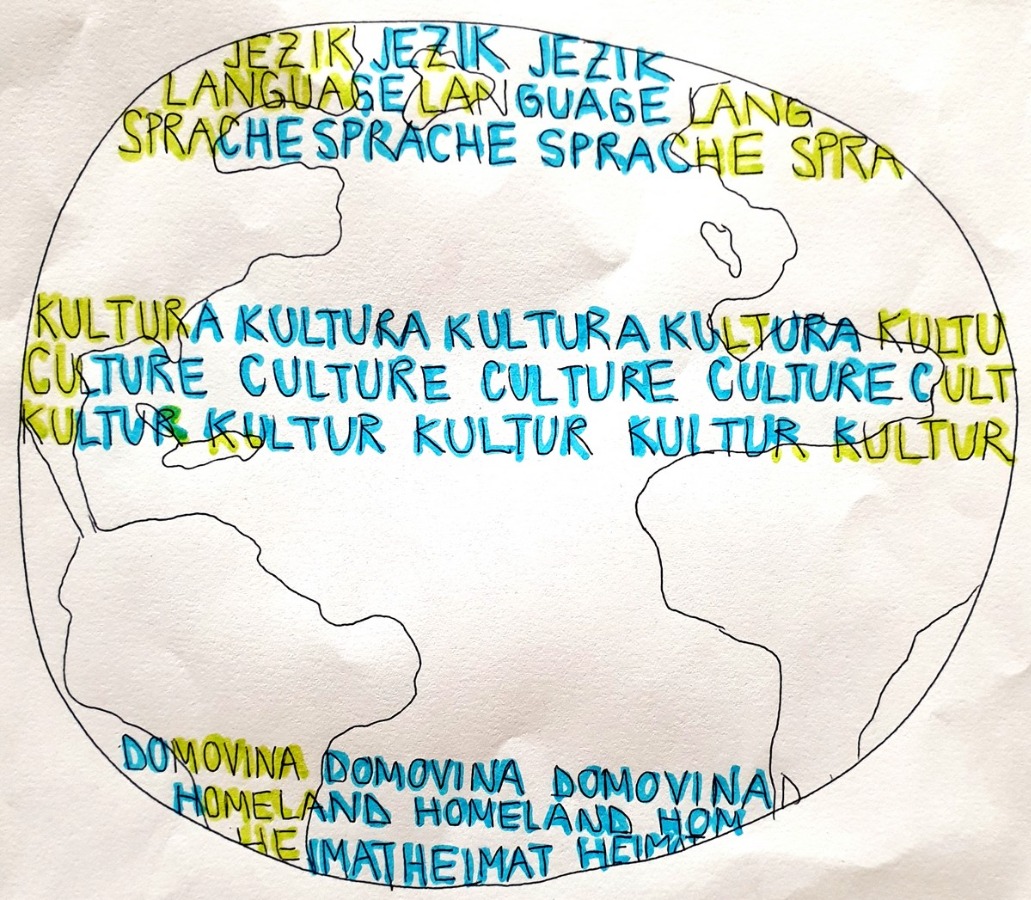 JEZIK JEZIK JEZIK
LANGUAGE LAN GUAGE LANG
SPRACHE SPRACHE SPRACHE SPRA
KULTURA KULTURA KULTURA KULTURA KULTU
CULTURE CULTURE CULTURE CULTURE CULT
KULTUR KULTUR KULTUR KULTUR KULTUR
DOMOVINA DOMOVINA DOMOVINA D
HOMELAND HOMELAND HOM
HEIMAT HEIMAT HEIMAT